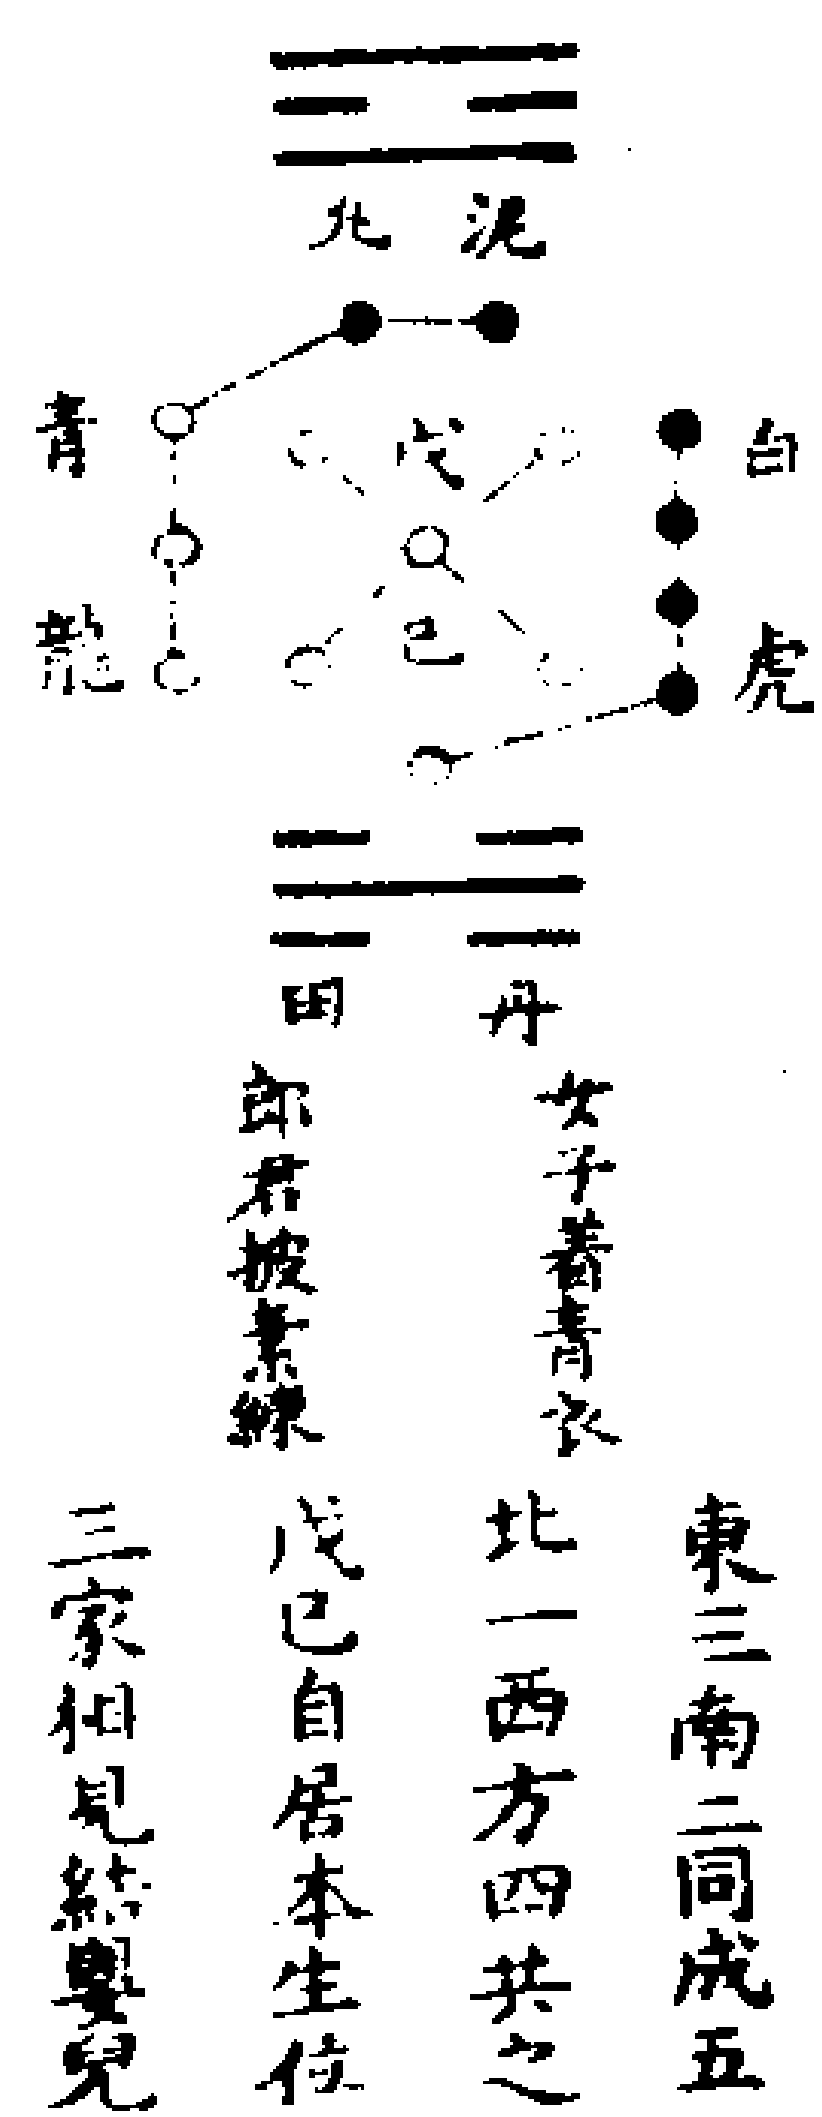 泥
青龍
戊
己
白虎
丹田
女子著青衣
郎君披素練
東三南二同成五
北一西方四共之
戊己自居本生位
三家相見結嬰兒